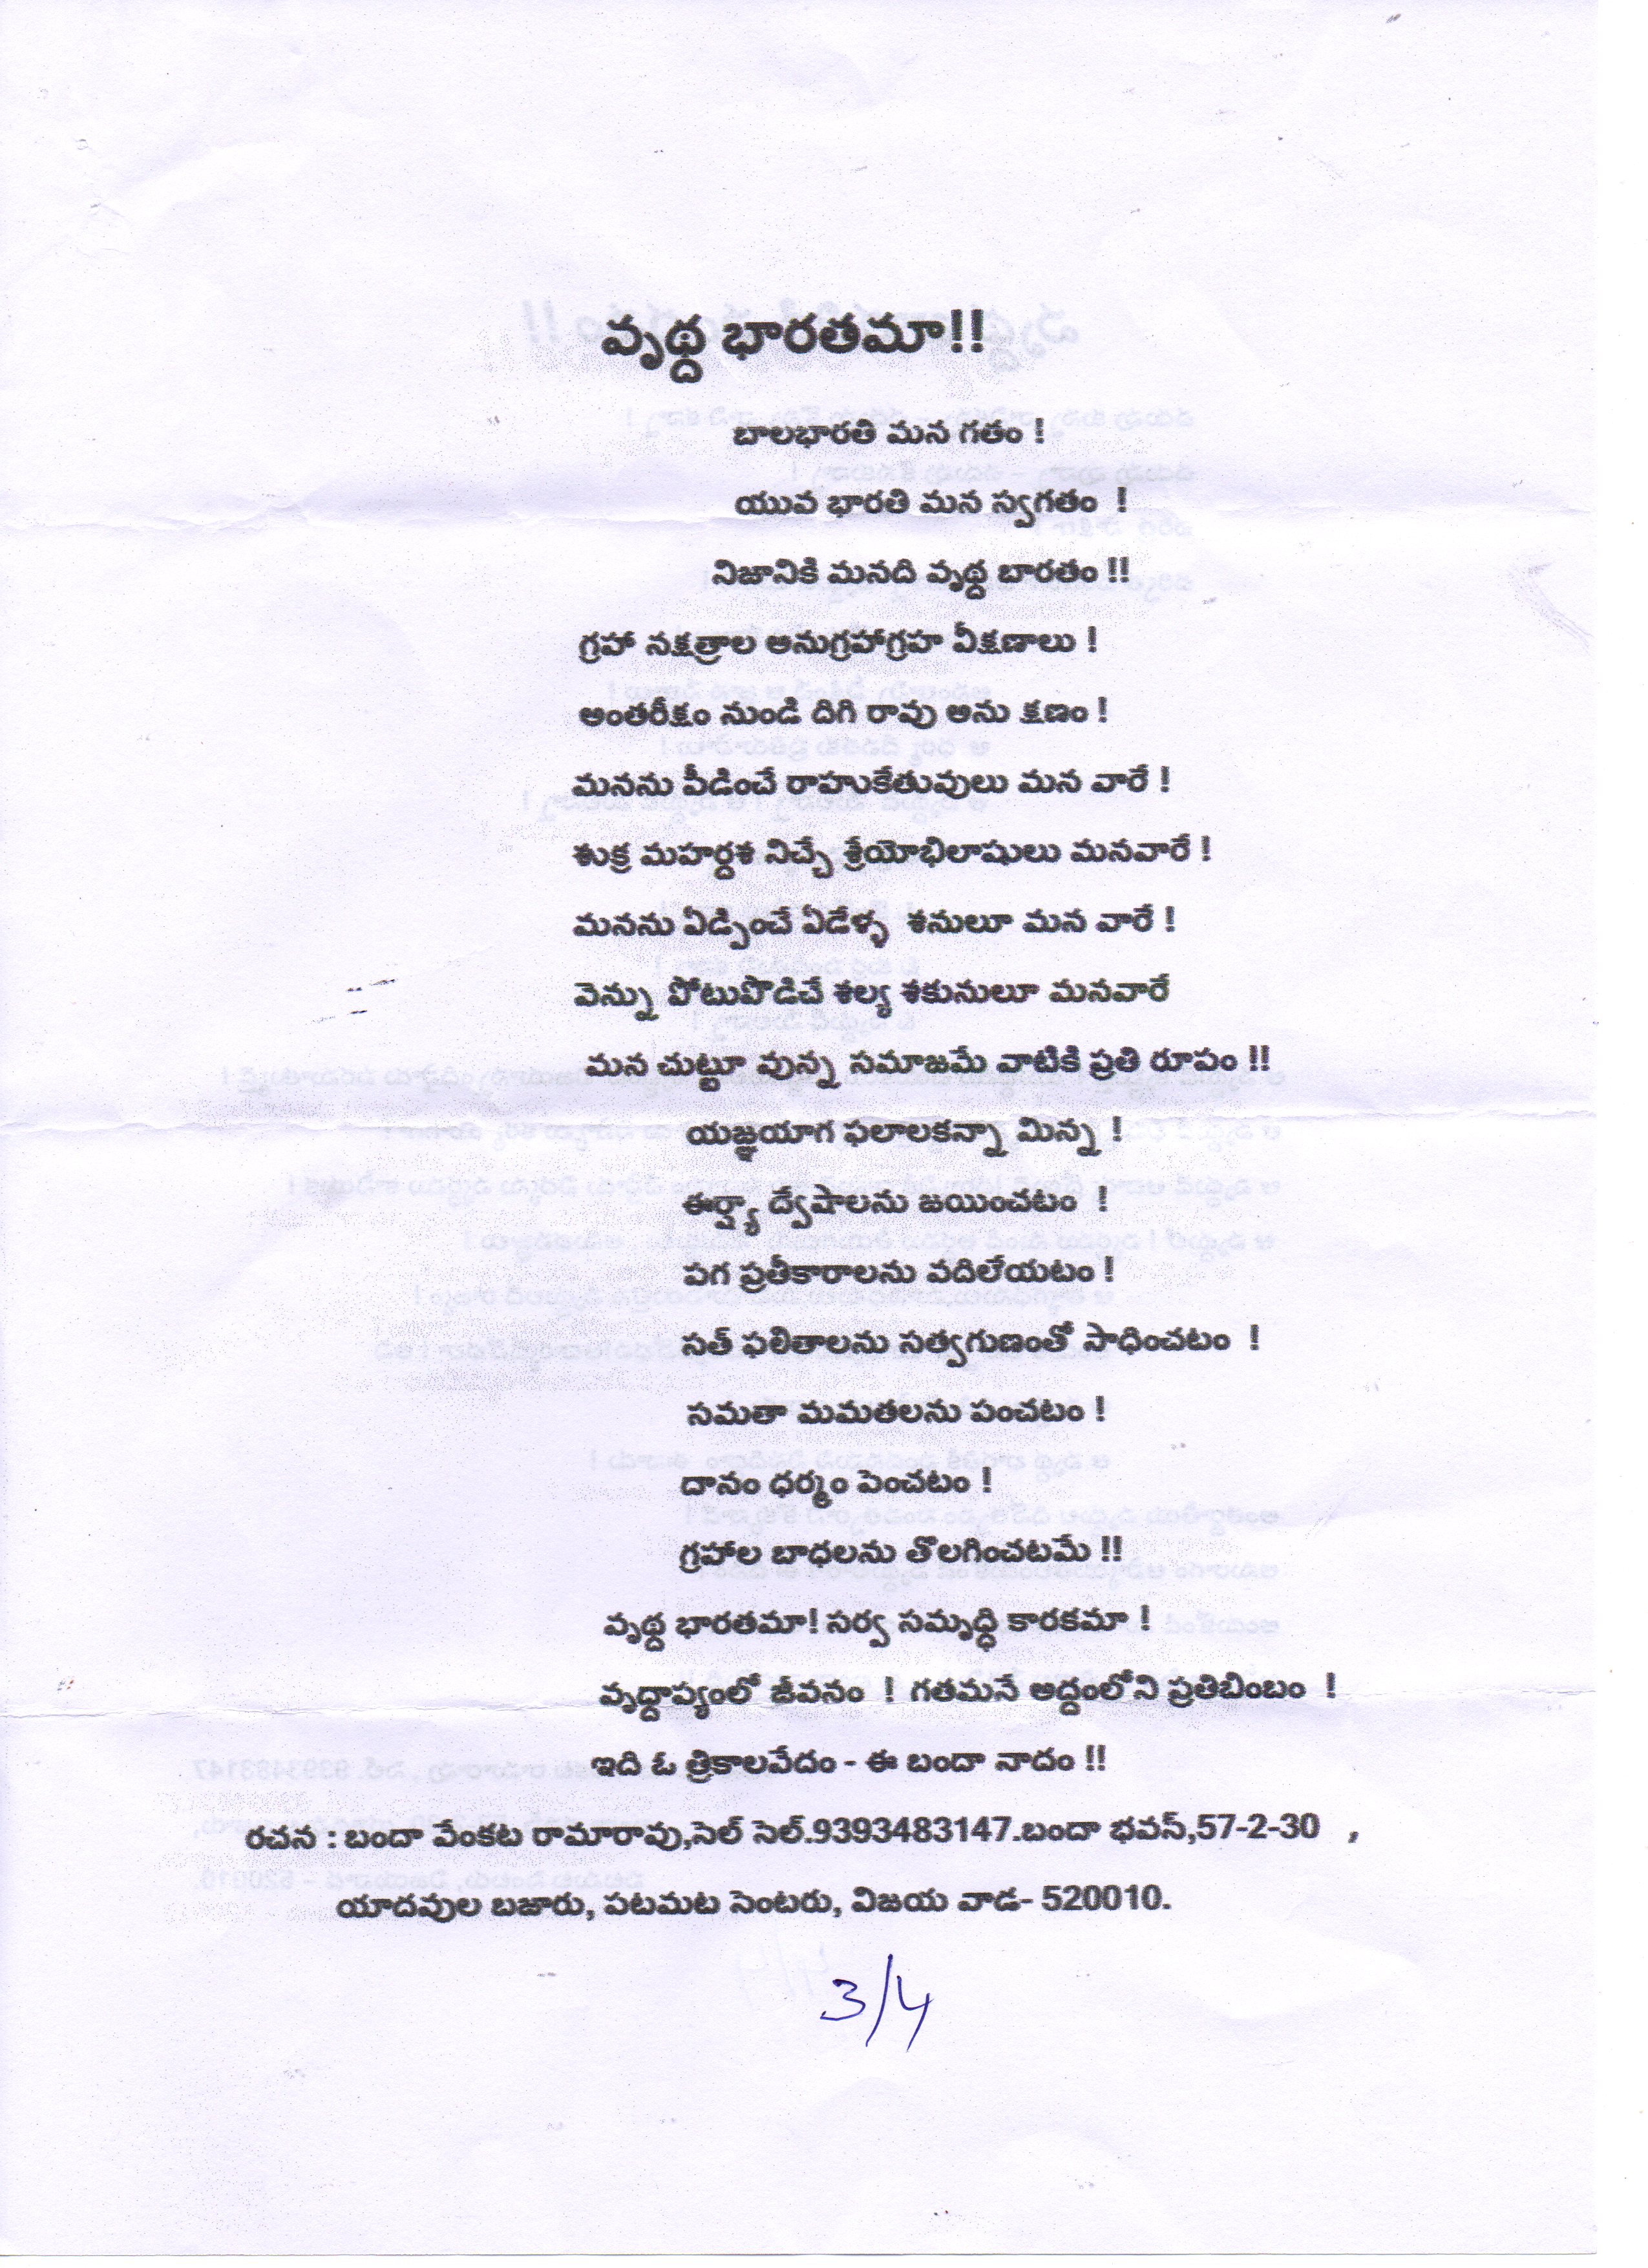 వృధ్ద భారతమా!!
బాలభారతి మన గతం !
యువ భారతి మన స్వగతం !
నిజానికి మనది వృధ్ద బారతం !!
గ్రహా నక్షత్రాల అనుగ్రహాగ్రహ వీక్షణాలు !
అంతరీక్షం నుండి దిగి రావు అను క్షణం !
మనను పీడించే రాహుకేతువులు మన వారే !
శుక్ర మహర్దశ నిచ్చే శ్రేయోభిలాషులు మనవారే !
మనను ఏడ్పించే ఏడేళ్ళ శనులూ మన వారే !
వెన్ను పోటుపొడిచే శల్య శకునులూ మనవారే
మన చుట్టూ వున్న సమాజమే వాటికి ప్రతి రూపం !!
యజ్ఞయాగ ఫలాలకన్నా మిన్న !
ఈర్ష్యా ద్వేషాలను జయించటం !
పగ ప్రతీకారాలను వదిలేయటం !
సత్ ఫలితాలను సత్వగుణంతో సాధించటం !
సమతా మమతలను పంచటం !
దానం ధర్మం పెంచటం !
గ్రహాల బాధలను తొలగించటమే !!
వృధ్ద భారతమా! సర్వ సమృధ్ధి కారకమా !
వృద్దాప్యంలో జీవనం ! గతమనే అద్దంలోని ప్రతిబింబం !
ఇది ఓ త్రికాలవేదం - ఈ బందా నాదం !!
రచన : బందా వేంకట రామారావు,సెల్ సెల్.9393483147.బందా భవన్,57-2-30 ,
యాదవుల బజారు, పటమట సెంటరు, విజయ వాడ- 520010.
3/4